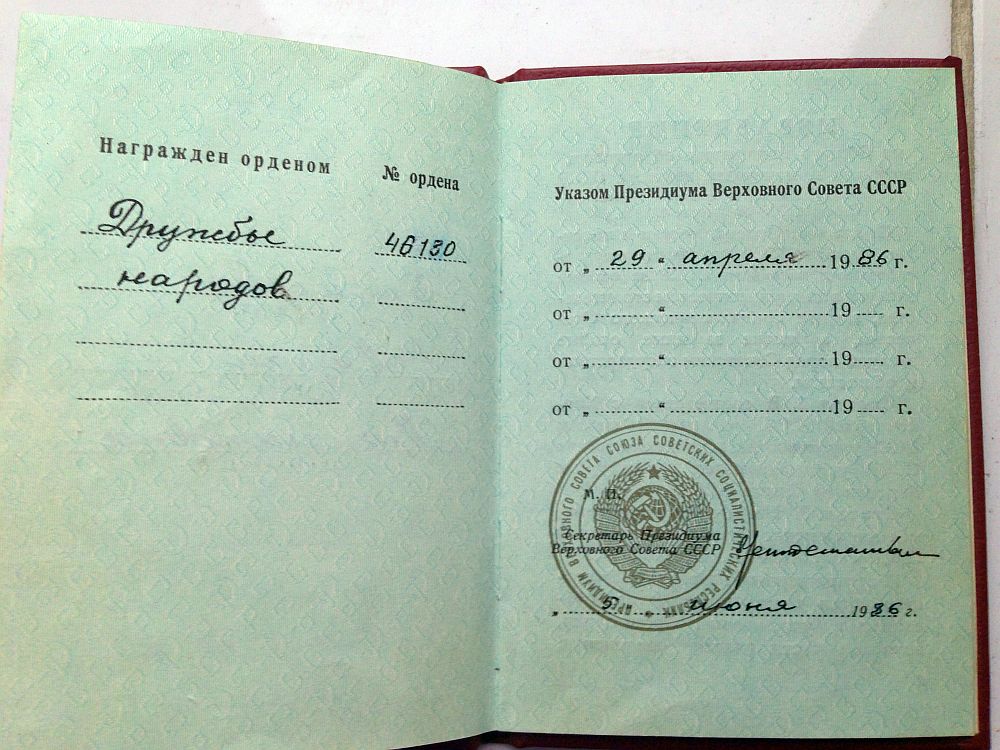 Награжден орденом
№ ордена
Дружбы
46130
народов
Указом Президиума Верховного Совета СССР
от „ 29 “ апреля 1986 г.
от „ “ 19 г.
от „ “ 19 г.
от „ “ 19 г.
ПРЕЗИДИУМ ВЕРХОВНОГО СОВЕТА СОЮЗА СОВЕТСКИХ СОЦИАЛИСТИЧЕСКИХ РЕСПУБЛИК
М. П.
Секретарь Президиума
Верховного Совета СССР
„ 5 июня 1986 г.